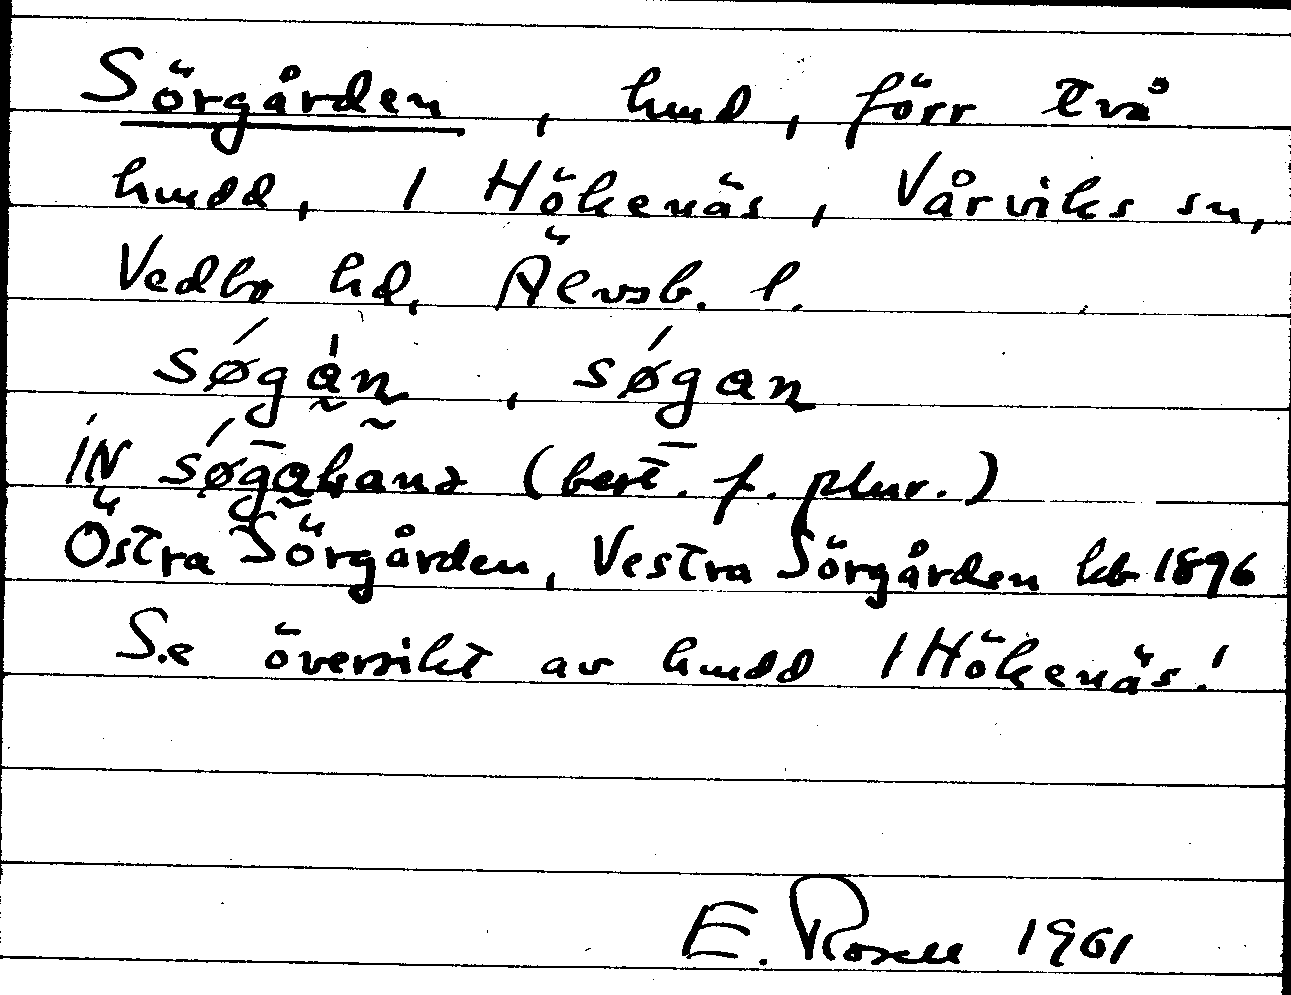 Sörgården, hmd, förr två
hmdd, i Hökenäs, Vårviks sn,
Vedbo hd, Älvsb. l.
søgàn, søgan
IN søgabanə (best. f. plur.)
Östra Sörgården, Vestra Sörgården kb 1896
Se översikt av hmdd i Hökenäs!
E. Rosell 1961